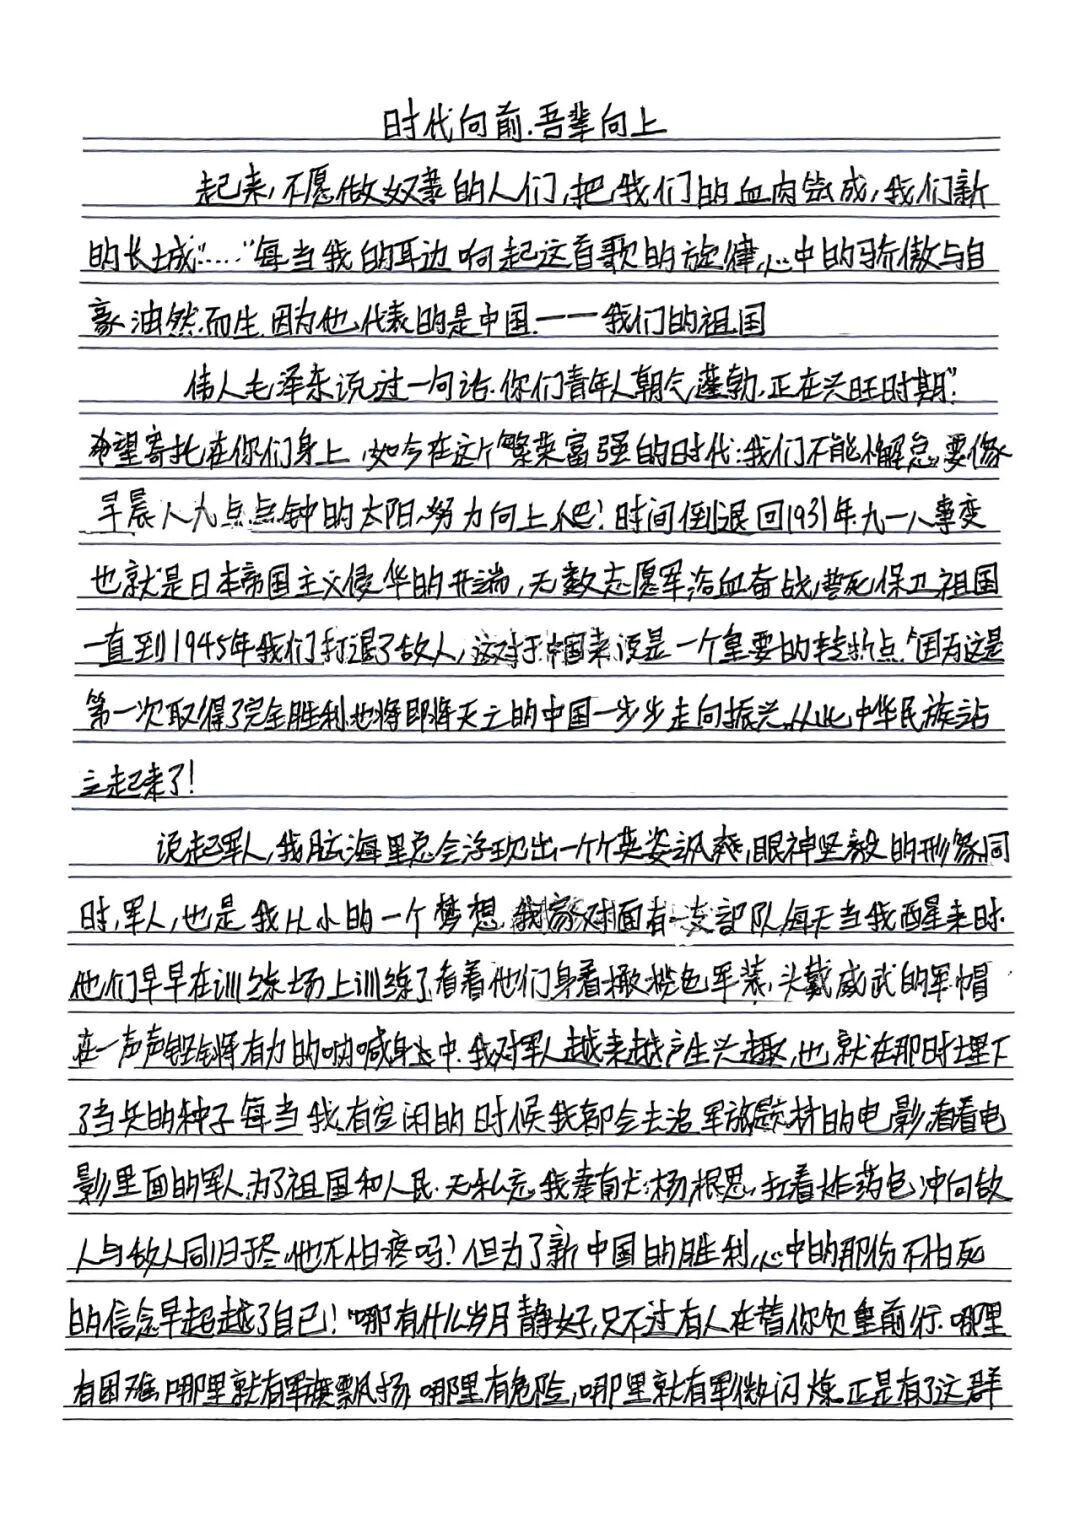 时代向前.吾辈向上
起来,不愿做奴隶的人们,把我们的血肉筑成,我们新
的长城“……”每当我的耳边响起这首歌的旋律,心中的骄傲与自
豪油然而生.因为他代表的是中国.——我们的祖国
伟人毛泽东说过一句话.你们青年人朝气蓬勃.正在兴旺时期”.
希望寄托在你们身上,如今在这个繁荣富强的时代:我们不能懈怠,要像
早晨八九点点钟的太阳,努力向上吧!时间倒退回1931年九一八事变
也就是日本帝国主义侵华的开端,无数志愿军浴血奋战,誓死保卫祖国
一直到1945年我们打退了敌人,这对于中国来说是一个重要的转折点.因为这是
第一次取得了完全胜利,也将即将灭亡的中国一步步走向振兴.从此,中华民族站
立起来了!
说起军人,我脑海里总会浮现出一个个英姿飒爽,眼神坚毅的形象同
时,军人,也是我从小的一个梦想.我家对面有一支部队,每天当我醒来时.
他们早早在训练场上训练了,看着他们身着橄榄色军装,头戴威武的军帽
在一声声铿锵有力的呐喊身中.我对军人越来越产生兴趣,也就在那时埋下
了当兵的种子每当我有空闲的时候我都会去追军旅题材的电影,看着电
影里面的军人,为了祖国和人民.无私忘我奉献:杨根思,扛着炸药包冲向敌
人与敌人同归于尽,他不怕疼吗?但为了新中国的胜利,心中的那份不怕死
的信念早起越了自己!哪有什么岁月静好,只不过有人在替你负重前行.哪里
有困难,哪里就有军旗飘扬.哪里有危险,哪里就有军微闪烁.正是有了这群